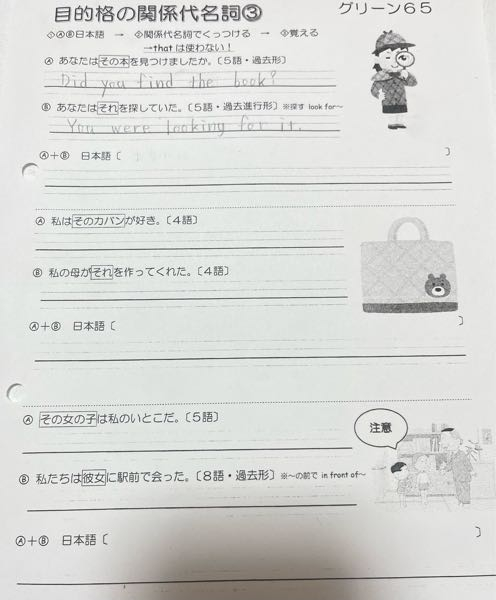 目的格の関係代名詞③ グリーン65
①ⒶⒷ日本語 → ②関係代名詞でくっつける → ③覚える
→thatは使わない！
Ⓐ あなたはその本を見つけましたか。〔5語・過去形〕
Did you find the book?
Ⓑ あなたはそれを探していた。〔5語・過去進行形〕※探す look for～
You were looking for it.
Ⓐ＋Ⓑ 日本語〔 〕
Ⓐ 私はそのカバンが好き。〔4語〕
Ⓑ 私の母がそれを作ってくれた。〔4語〕
Ⓐ＋Ⓑ 日本語〔 〕
Ⓐ その女の子は私のいとこだ。〔5語〕
注意
Ⓑ 私たちは彼女に駅前で会った。〔8語・過去形〕※～の前で in front of～
Ⓐ＋Ⓑ 日本語〔 〕